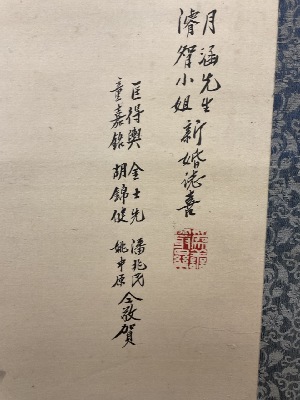 月涵先生
濬智小姐新婚誌喜
匡得輿 金士先 潘兆民
童嘉銘 胡錦 姚中原 仝敬賀